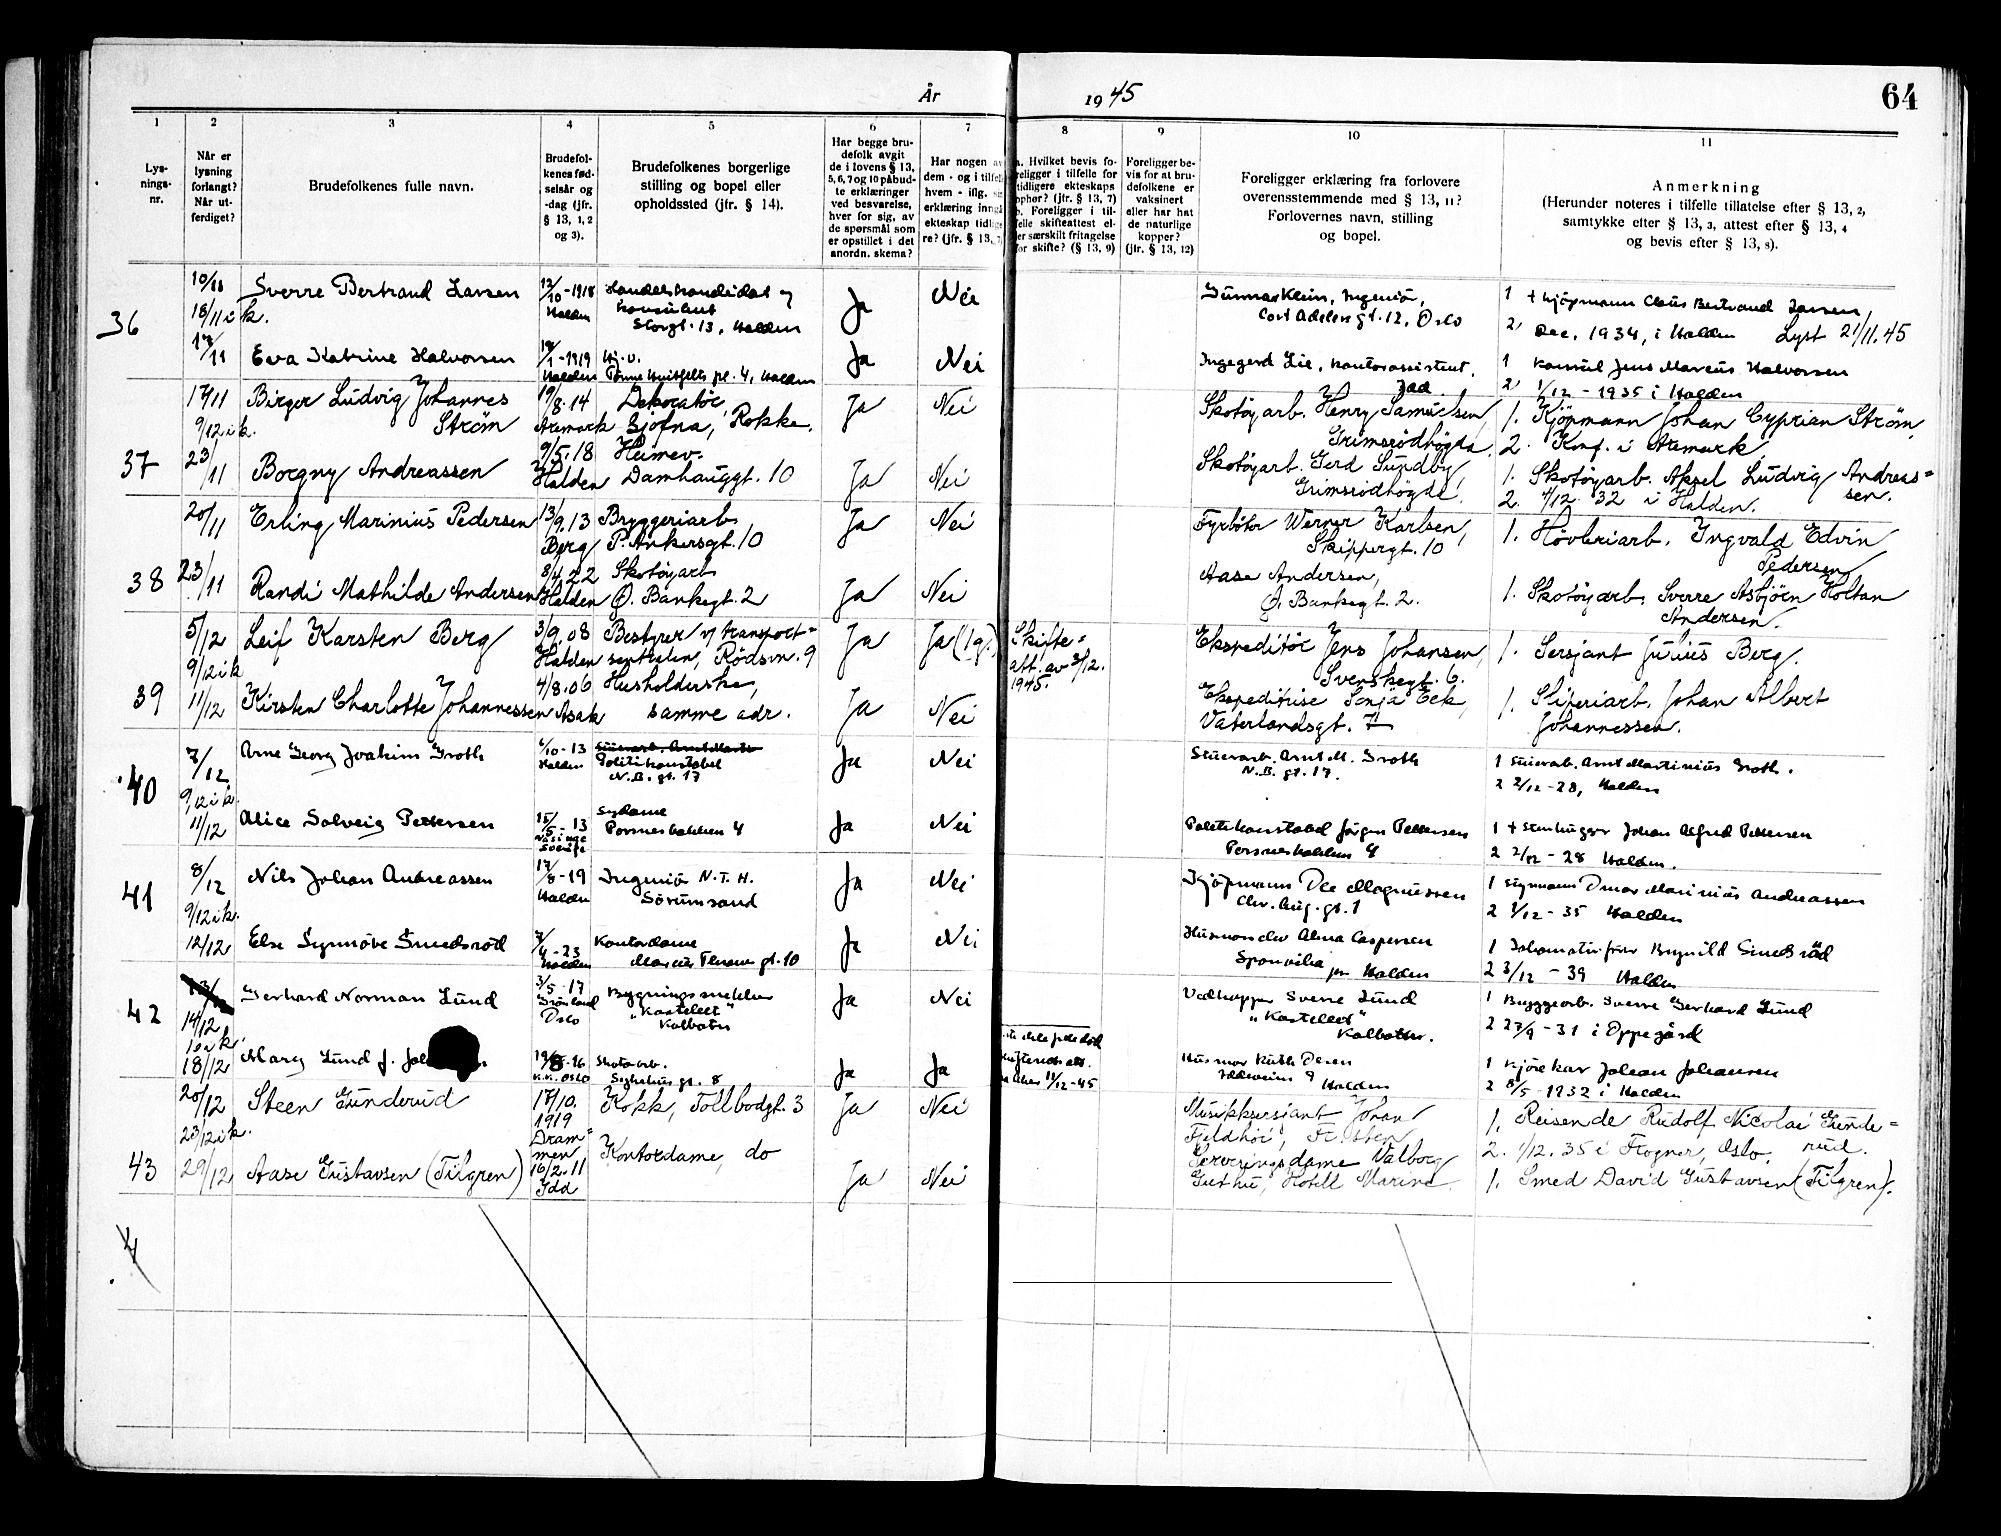 År 1945
64
1 2 3 4 5 6 7 8 9 10 11
Lys-
nings-
nr.
Når er
lysning
forlangt?
Når ut-
ferdiget?
Brudefolkenes fulle navn.
Brudefol-
kenes fød-
selsår og
-dag (jfr.
§ 13, 1, 2
og 3).
Brudefolkenes borgerlige
stilling og bopel eller
opholdssted (jfr. § 14).
Har begge bru-
defolk avgit
de i lovens § 13,
5, 6, 7 og 10 påbud-
te erklæringer
ved besvarelse,
hver for sig, av
de spørsmål som
er opstillet i det
anordn. skema?
Har nogen av
dem - og i tilfelle
hvem - iflg.
erklæring inngå
ekteskap tidlige
re? (jfr. § 13,
a. Hvilket bevis fo-
religger i tilfelle for
tidligere ekteskaps
ophør? (jfr. § 13, 7)
b. Foreligger i til-
felle skifteattest el-
ler særskilt fritagelse
for skifte? (§ 13, 9)
Foreligger be-
vis for at bru-
defolkene er
vaksinert
eller har hat
de naturlige
kopper?
(jfr. § 13, 12)
Foreligger erklæring fra forlovere
overensstemmende med § 13, 11?
Forlovernes navn, stilling
og bopel.
Anmerkning
(Herunder noteres i tilfelle tillatelse efter § 13, 2,
samtykke efter § 13, 3, attest efter § 13, 4
og bevis efter § 13, 8).
36
10/11
18/11 i k.
17/11
Sverre Bertrand Larsen
12/10-1918
Halden
Handelskandidat og
konsulent
Storgt. 13, Halden
Ja
Nei
Gunnar Klein, Ingeniør,
Cort Adelers gt. 12, Oslo
1 + Kjøpmann Claus Bertrand Larsen
2 Dec. 1934, i Halden Lyst 21/11.45
Eva Katrine Halvorsen
/1-1919
Halden
Hj.v.
Tønne Huitfelts pl. 4, Halden
Ja
Nei
Ingegerd Lie, kontorassistent,
Idd
1 Konsul Jens Marcus Halvorsen
2 1/12 - 1935 i Halden
37
17/11
9/12 i k.
23/11
Birger Ludvig Johannes
Strøm
19/8.14
Aremark
Dekoratør,
Sjøfna, Rokke.
Ja
Nei
Skotøyarb. Henry Samuelsen,
Grimsrødhøgda
1. Kjøpmann Johan Cyprian Strøm.
2. Konf. i Aremark
Borgny Andreassen
9/5.18
Halden
Heimev.
Damhauggt. 10
Ja
Nei
Skotøyarb. Gerd Sundby
Grimsrødhøgda.
1. Skotøyarb. Aksel Ludvig Andreas=
sen.
2. 4/12 32 i Halden.
38
20/11
23/11
Erling Marinius Pedersen
13/9.13
Berg
Bryggeriarb.
P. Ankersgt. 10
Ja
Nei
Fyrbøter Werner Karlsen,
Skippergt. 10
1. Høvleriarb. Ingvald Edvin
Pedersen
Randi Mathilde Andersen
8/4.22
Halden
Skotøyarb.
Ø. Bankegt. 2
Ja
Nei
Aase Andersen,
Ø. Bankegt. 2.
1. Skotøyarb. Sverre Asbjørn Holtan
Andersen.
39
5/12
9/12 i k
11/12
Leif Karsten Berg
3/9.08
Halden
Bestyrer v/ transport=
sentralen, Rødsvn. 9
Ja
Ja (1g.)
Skifte=
att. av 3/12.
1945.
Ekspeditør Jens Johansen,
Svenskegt. 6.
1. Sersjant Julius Berg.
Kirsten Charlotte Johannessen
4/8.06
Asak
Husholderske,
samme adr.
Ja
Nei
Ekspeditrise Senja Eek,
Vaterlandsgt. 7
1. Sliperiarb. Johan Albert
Johannessen.
40
7/12
9/12 i k.
11/12
Arne Georg Joakim Groth
/10-13
Halden
Politikonstabel
N.B. gt. 17
Ja
Nei
Stuerarb. Arnt M. Groth
N.B. gt. 17.
1 Stuerarb. Arnt Martinius Groth.
2 2/12-28, Halden
Alice Solveig Pettersen
15/5-13
Sverige
Sydame
Porsnesbakken 4
Ja
Nei
Politikonstabel Jørgen Pettersen
Porsnesbakken 4
1 + Stenhugger Johan Alfred Pettersen
2 2/12 - 28 Halden.
41
8/12
9/12 i k.
12/12
Nils Johan Andreassen
17/8-19
Halden
Ingeniør N.T.H.
Sørumsand
Ja
Nei
Kjøpmann Ole Magnussen
Chr. Aug. gt. 1
1 Styrmann Omar Marinius Andreassen
2 1/12-35 Halden
Else Synnøve Smedsrød
/4-23
Halden
Kontordame
Marcus Thrane gt. 10
Ja
Nei
Husmor Alma Caspersen
Sponvika pr Halden
1 Ingrid Smedsrød
2 3/12 - 39 Halden
42
14/12
18/12
Gerhard Norman Lund
3/5-17
Grønland
Oslo
Bygningssnekker
"Kastellet"
Kolbotn
Ja
Nei
Vedhugger Sverre Lund
"Kastellet"
Kolbotn.
1 Byggearb. Sverre Gerhard Lund
2 27/9-31 i Oppegård
Mary Lund f.
19/8-16
K.K. Oslo
Skotøarb.
Sykehus gt. 8
Ja
Ja
11/12-45
Husmor Ruth Olsen
Iddeveien 9 Halden
1 Kjørekar Johan Johansen
2 8/5-1932 i Halden
43
20/12
23/12 i k.
29/12
Steen Gunderud
17/10.
1919
Dram=
men
Kokk, Tollbodgt. 3
Ja
Nei
Musikksersjant Johan
Fjeldhøi, Fr.sten
1. Reisende Rudolf Nicolai Gunde=
rud.
2. 1/12.35 i Frogner, Oslo.
Aase Gustavsen (Tilgren)
16/2.11
Idd
Kontordame, do
Ja
Nei
Serveringsdame Valborg
Guthu, Hotell Marine.
1. Smed David Gustavsen (Tilgren).